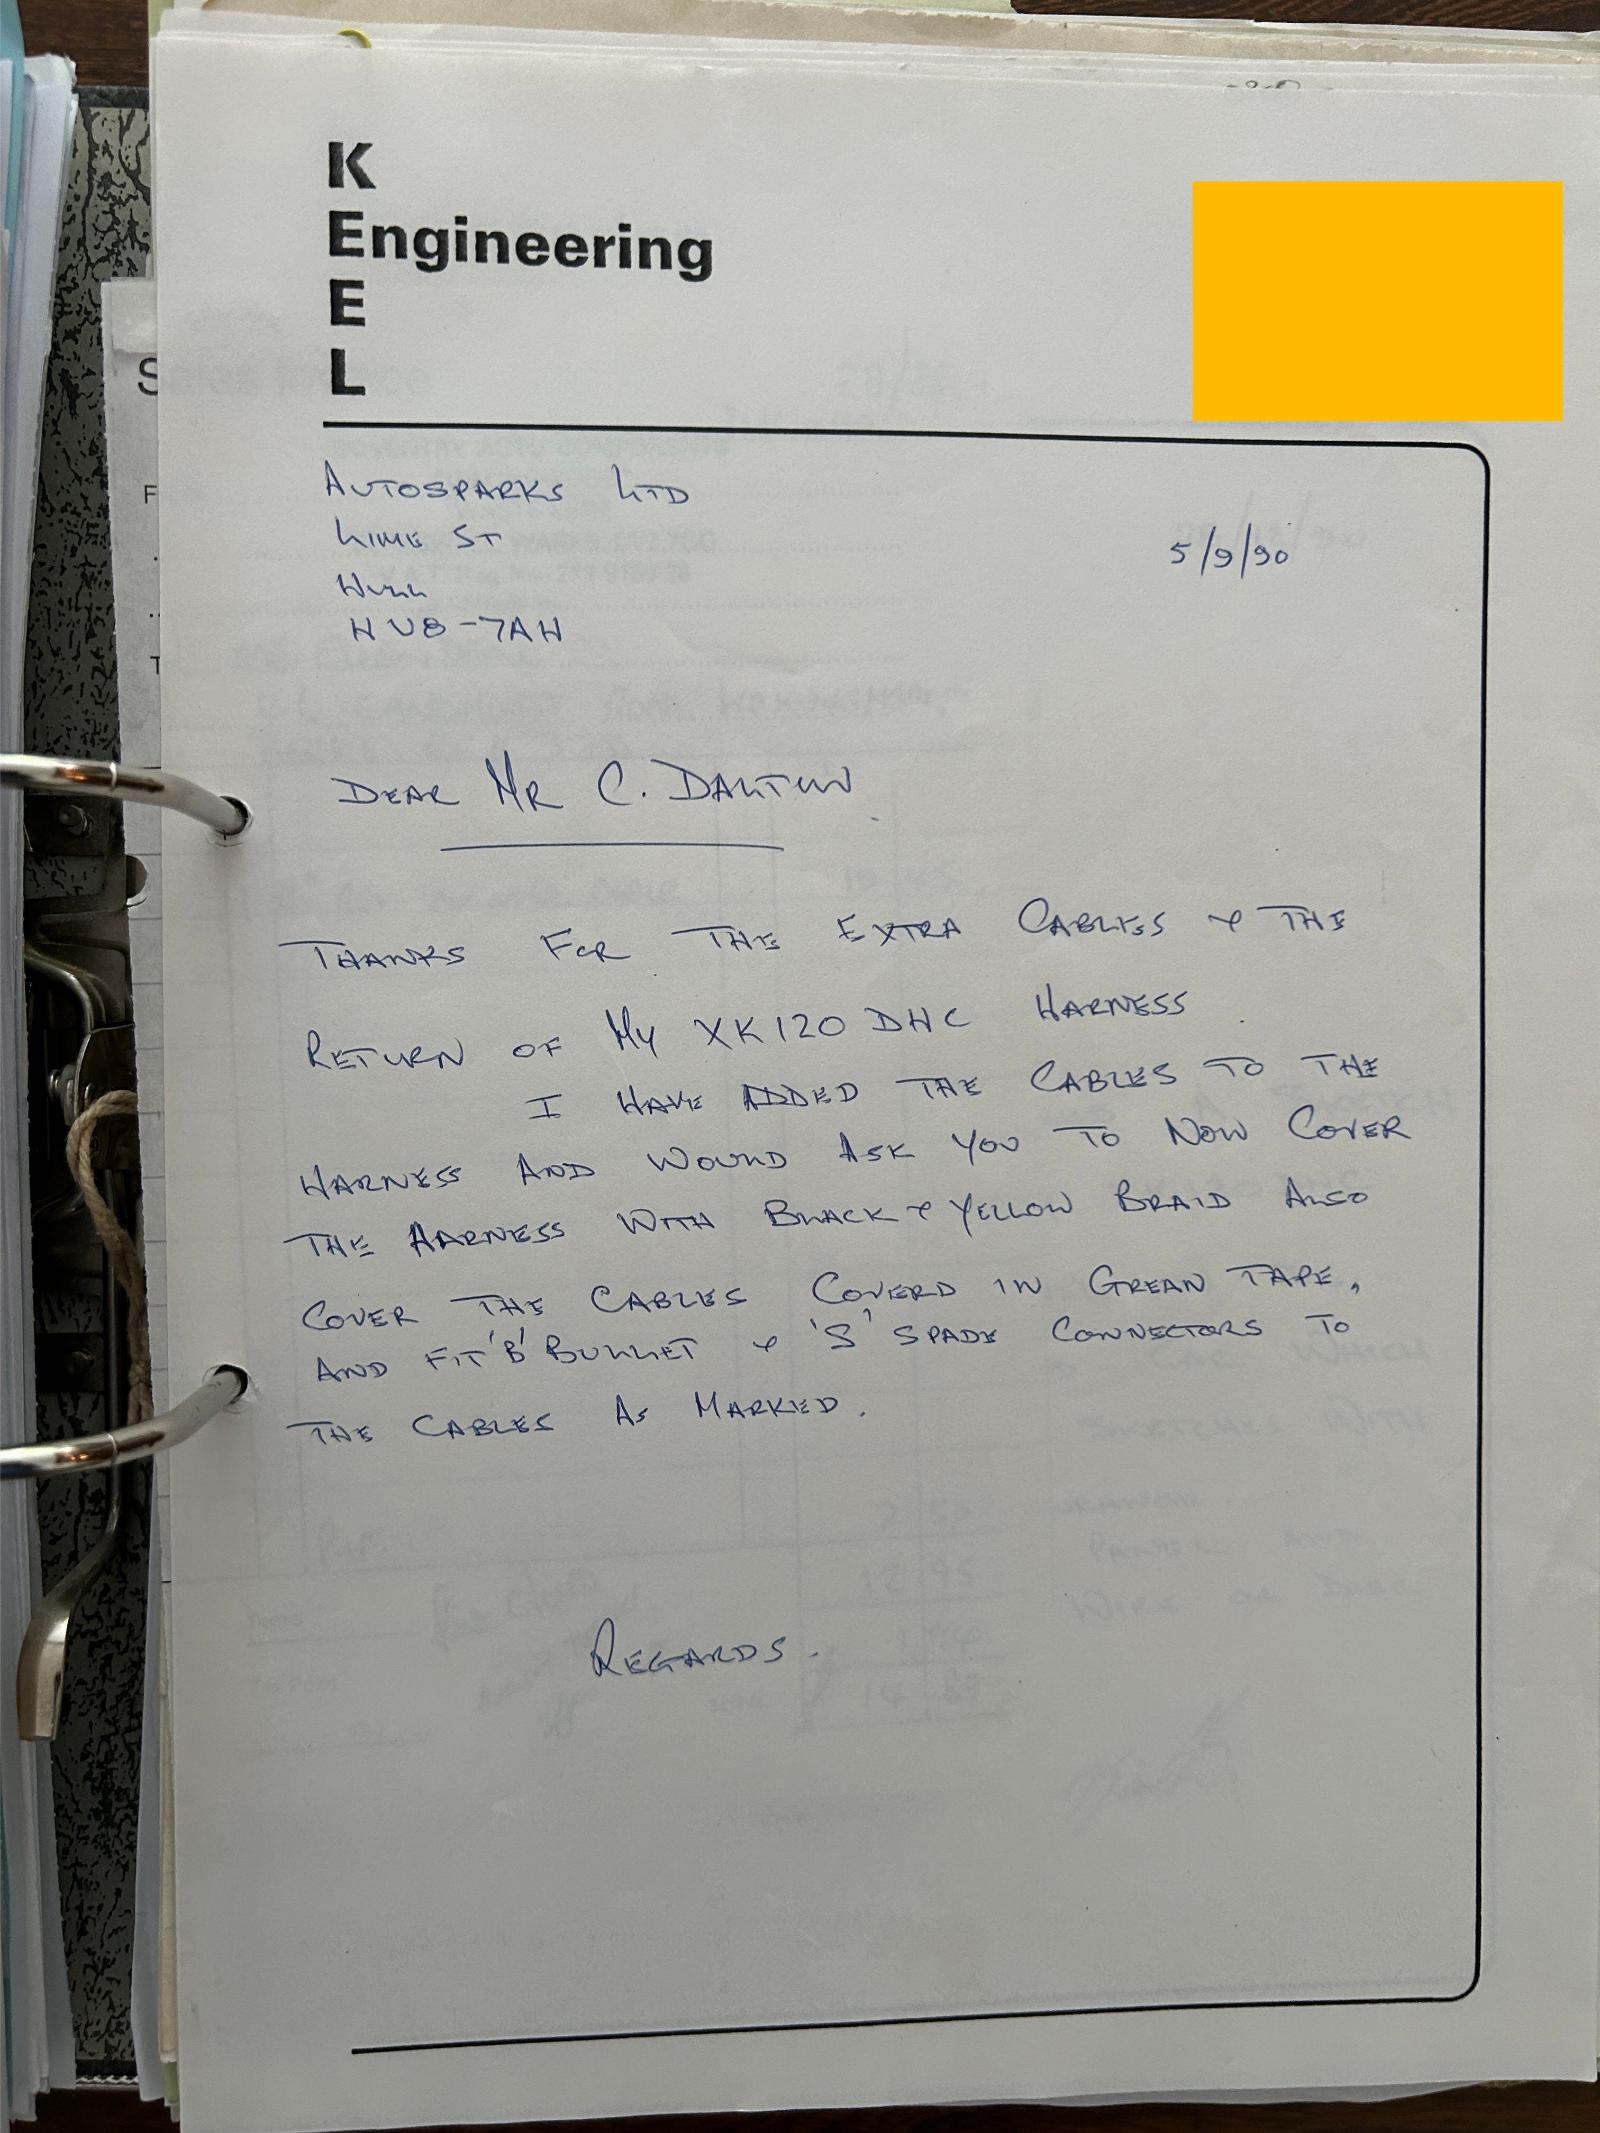 K
Engineering
E
L
AUTOSPARKS LTD
LIME ST
HULL
HU8-7AH
5/9/90
DEAR MR C. DALTON
THANKS FOR THE EXTRA CABLES & THE
RETURN OF MY XK120 DHC HARNESS
I HAVE ADDED THE CABLES TO THE
HARNESS AND WOULD ASK YOU TO NOW COVER
THE HARNESS WITH BLACK & YELLOW BRAID ALSO
COVER THE CABLES COVERD IN GREAN TAPE,
AND FIT 'B' BULLET & 'S' SPADE CONNECTORS TO
THE CABLES AS MARKED.
REGARDS.